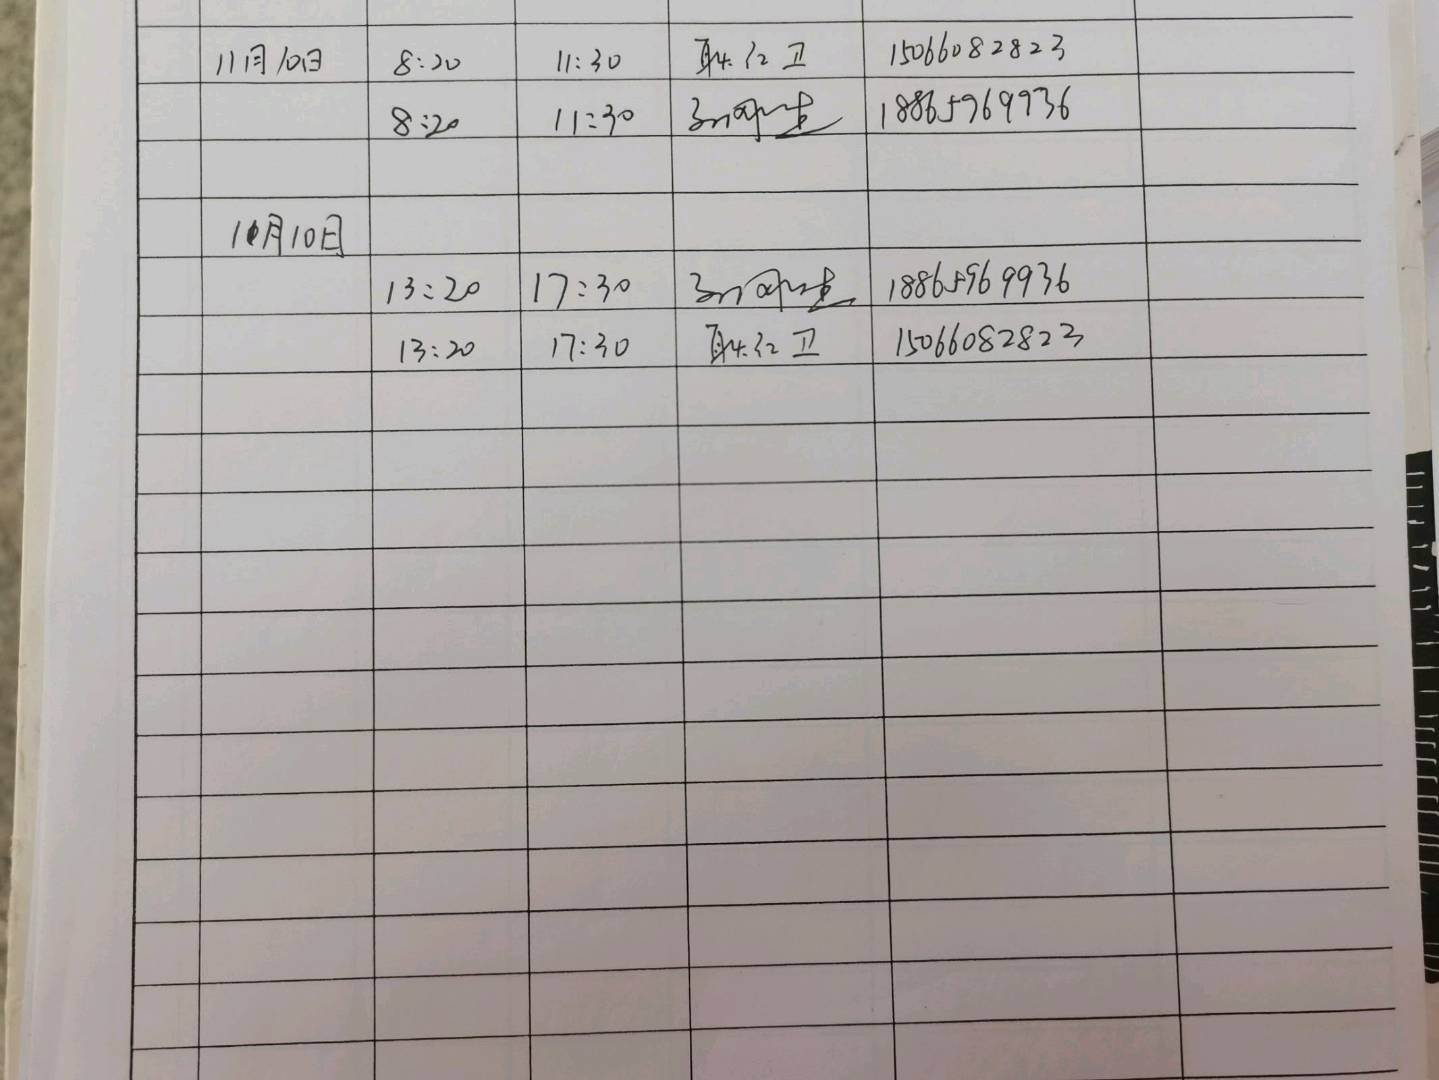 11月10日 8:20 11:30 耿红卫 15066082823
8:20 11:30 18865969936
11月10日
13:20 17:30 18865969936
13:20 17:30 耿红卫 15066082823